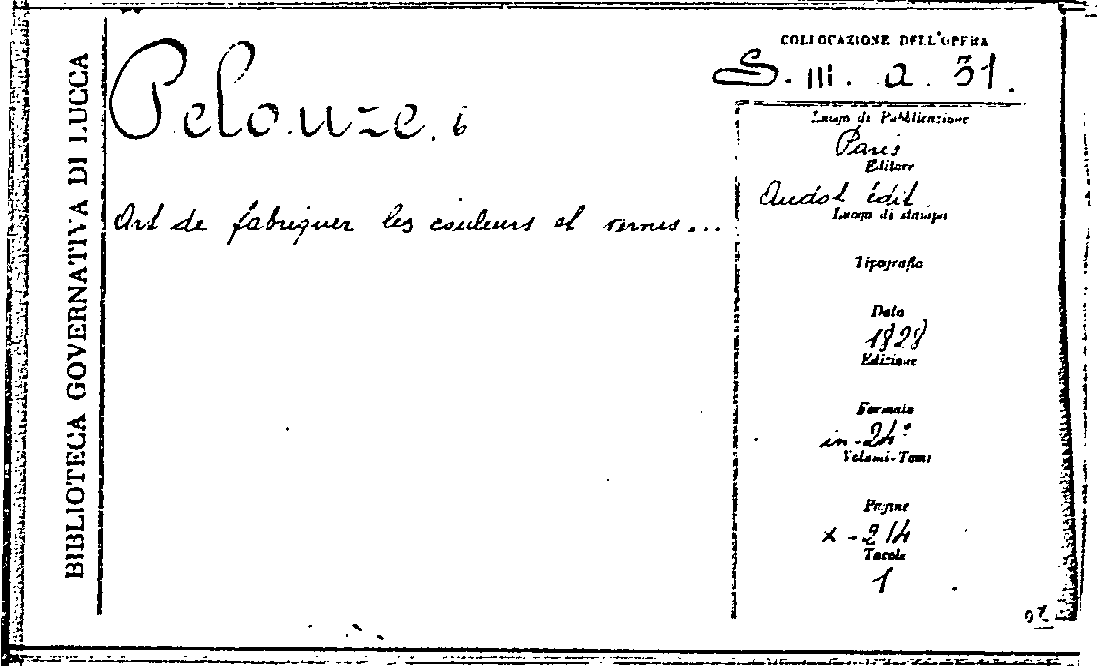 BIBLIOTECA GOVERNATIVA DI LUCCA
Pelouze. 6
Art de fabriquer les couleurs et vernis...
COLLOCAZIONE DELL'OPERA
S. III. a. 31.
Luogo di Pubblicazione
Paris
Editore
Audot édit.
Luogo di stampa
Tipografia
Data
1828
Edizione
Formato
in-24°
Volumi-Tomi
Pagine
x-214
Tavole
1